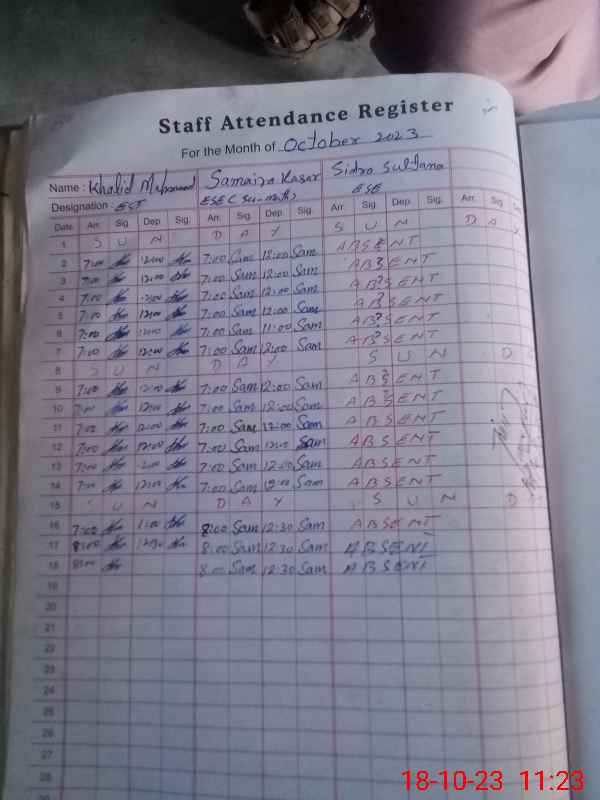 Staff Attendance Register
For the Month of October 2023
Name : Khalid Mehmood Samaira Kasar Sidra Sultana
Designation : EST ESE ( Sc-math) ESE
Date Arr. Sig. Dep. Sig. Arr. Sig. Dep. Sig. Arr. Sig. Dep. Sig. Arr. Sig.
1 S U N D A Y S U N D A Y
2 7:00 12:00 7:00 Sam 12:00 Sam ABSENT
3 7:00 12:00 7:00 Sam 12:00 Sam ABSENT
4 7:00 12:00 7:00 Sam 12:00 Sam ABSENT
5 7:00 12:00 7:00 Sam 12:00 Sam ABSENT
6 7:00 12:00 7:00 Sam 11:00 Sam ABSENT
7 7:00 12:00 7:00 Sam 12:00 Sam ABSENT
8 S U N D A Y S U N D
9 7:00 12:00 7:00 Sam 12:00 Sam ABSENT
10 7:00 12:00 7:00 Sam 12:00 Sam ABSENT
11 7:00 12:00 7:00 Sam 12:00 Sam ABSENT
12 7:00 12:00 7:00 Sam 12:00 Sam ABSENT
13 7:00 12:00 7:00 Sam 12:00 Sam ABSENT
14 7:00 12:00 7:00 Sam 12:00 Sam ABSENT
15 S U N D A Y S U N D
16 7:00 8:00 Sam 12:30 Sam ABSENT
17 8:00 12:30 8:00 Sam 12:30 Sam ABSENT
18 8:00 8:00 Sam 12:30 Sam ABSENT
19
20
21
22
23
24
25
26
27
28
18-10-23 11:23